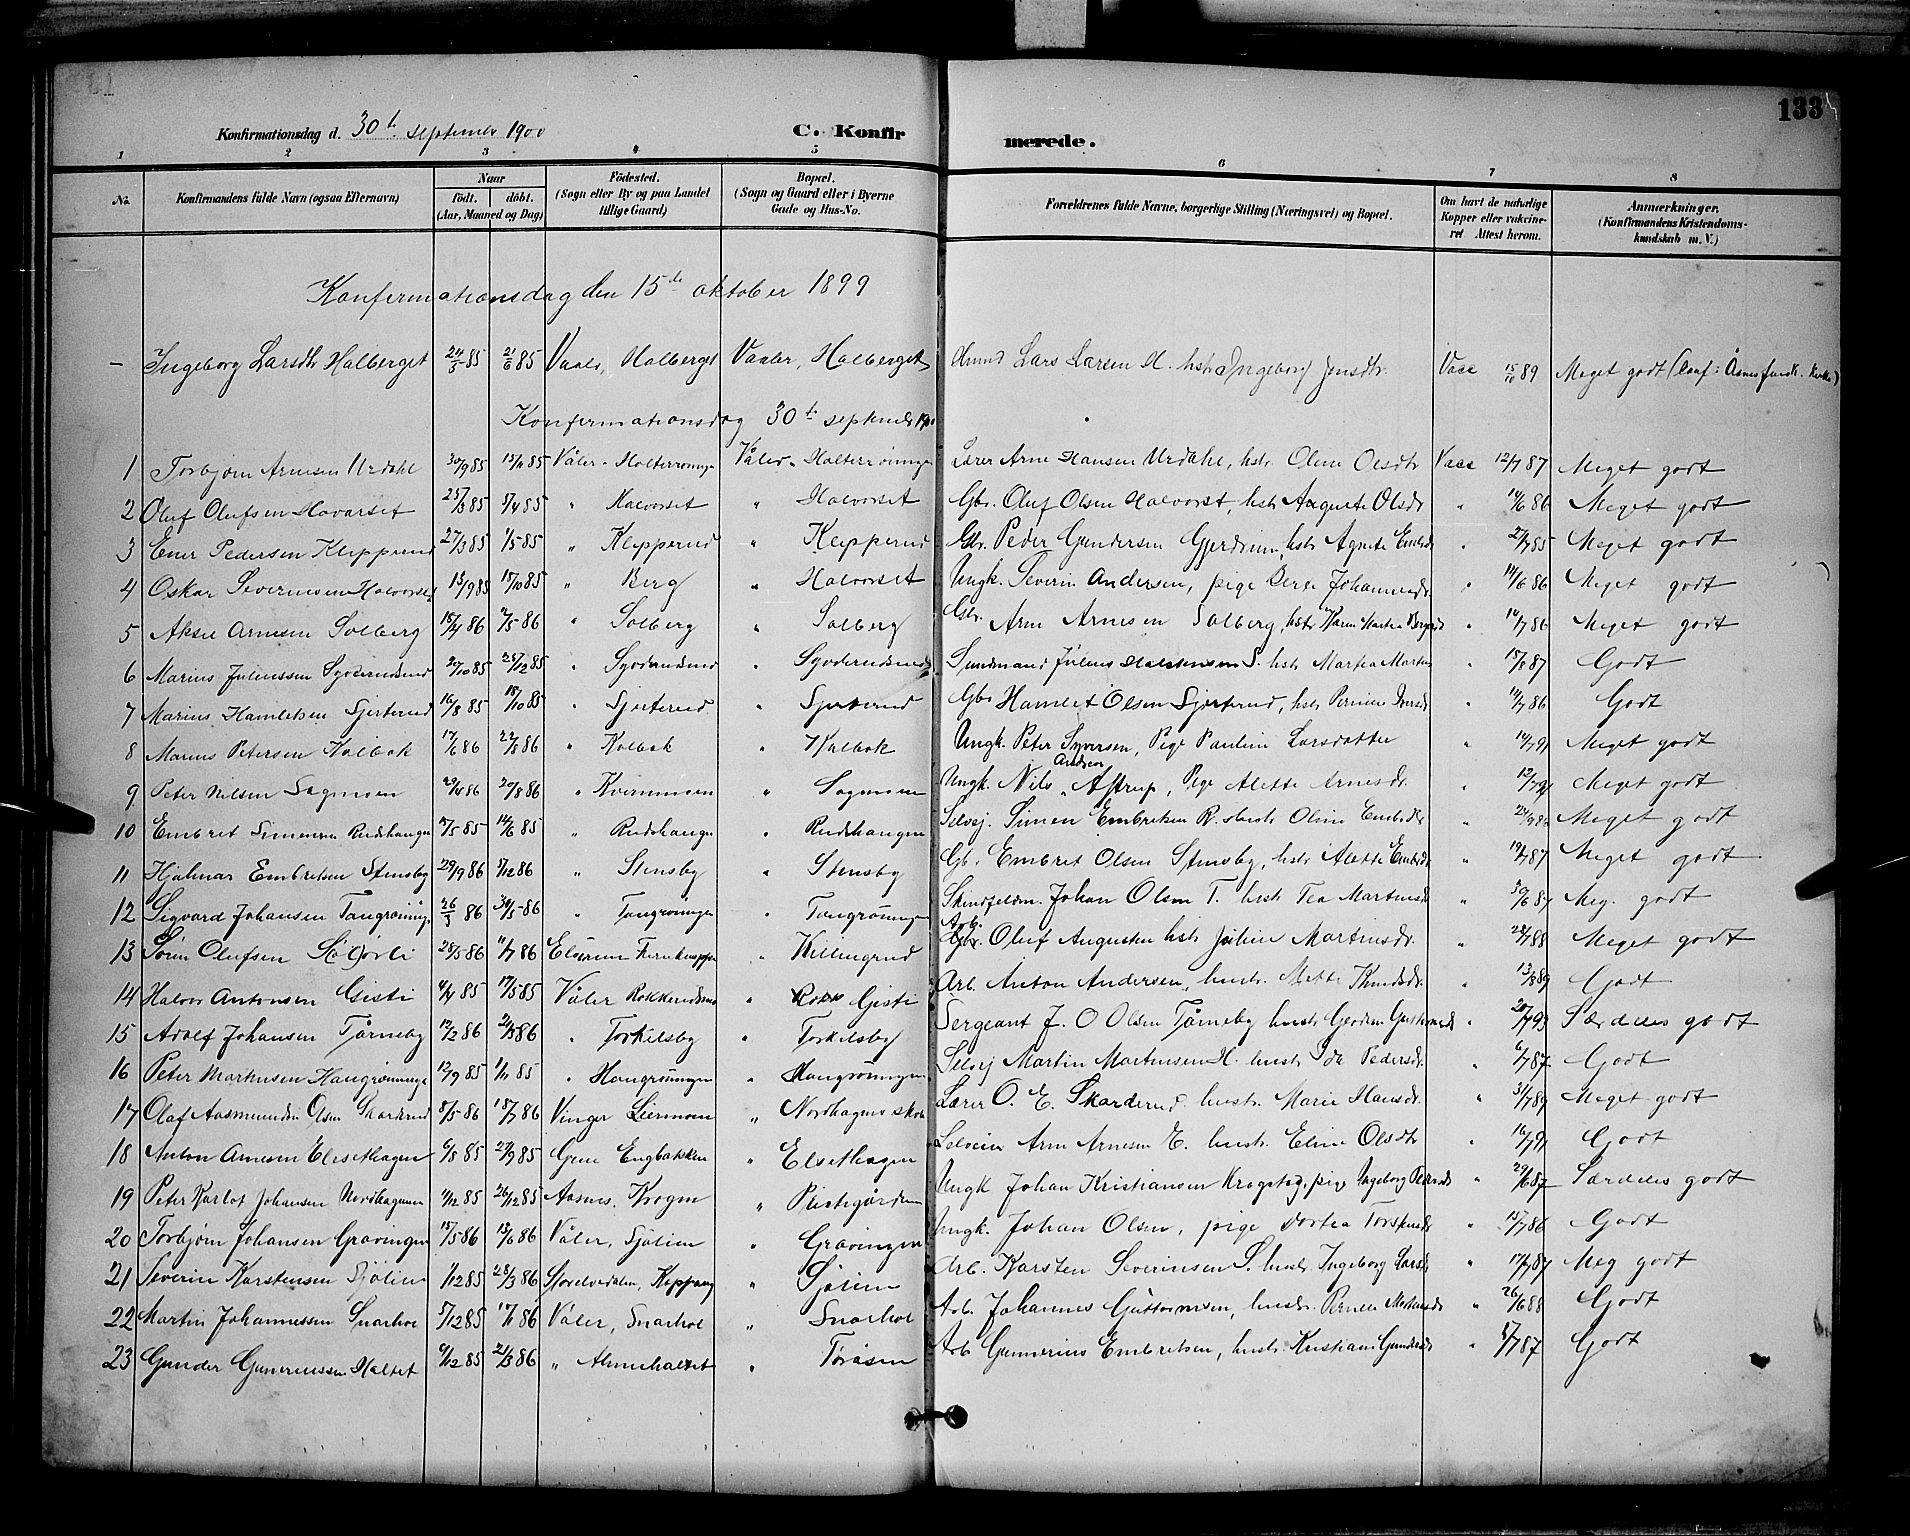 133
Konfirmationsdag d. 30te september 1900 C. Konfirmerede.
1 2 3 4 5 6 7 8
No. Konfirmandens fulde Navn (ogsaa Efternavn) Naar født. døbt. (Aar, Maaned og Dag) Fødested. (Sogn eller By og paa Landet tillige Gaard) Bopæl. (Sogn og Gaard eller i Byerne Gade og Hus-No. Forældrenes fulde Navne, borgerlige Stilling (Næringsvei) og Bopæl. Om havt de naturlige Kopper eller vakcineret Attest herom. Anmærkninger. (Konfirmandens Kristendomskundskab m. V.)
Konfirmationsdag den 15de oktober 1899
- Ingeborg Larsdtr Halberget 24/5 85 21/6 85 Vaaler, Halberget Vaaler, Halberget Lars Larsen H. hstr Ingeborg Jonsdtr. Vacc 15/10 89 Meget godt
Konfirmationsdag 30te september 1900
1 Torbjørn Arnesen Urdahl 30/9 85 15/11 85 Våler - Holterrøningen Våler - Holterrøningen Lærer Arne Hansen Urdahl, hstr Oline Olsdtr Vacc 12/7 87 Meget godt
2 Oluf Olufsen Havarset 25/3 85 5/4 85 " Halvorset " Halvorset Gbr. Oluf Olsen Halvorset, hstr Auguste Olsdr " 14/6 86 Meget godt
3 Ener Pedersen Klipperud 27/3 85 1/5 85 " Klipperud " Klipperud Gbr. Peder Gundersen Gjerdrum, hstr Agnete Embrdr " 2/7 85 Meget godt
4 Oskar Severinsen Halvorset 15/9 85 18/10 85 " Berg " Halvorset Ungk. Severin Andersen, pige Berte Johannesdr " 14/6 86 Meget godt
5 Aksel Arnesen Solberg 18/4 86 2/5 86 " Solberg " Solberg Gbr. Arne Arnesen Solberg, hstr Karen Martea " 14/7 86 Meget godt
6 Marius Juliussen 20/10 85 25/12 85 " " Julius Halstensen S. hstr Martea " 15/8 87 Godt
7 Marius Hamletsen Sjorterud 16/8 85 18/10 85 " Sjorterud " Sjorterud Gbr Hamlet Olsen Sjorterud, hstr Pernine " 14/7 86 Godt
8 Marius Petersen Kolbok 17/6 86 22/8 86 " Kolbok " Kolbok Ungk. Peter Syversen, Pige Pauline Larsdatter " 14/7 91 Meget godt
9 Peter Nilsen Sagmoen 29/4 86 20/8 86 " Kvernmoen " Sagmoen Ungk. Nils Andreas Aftrup, Pige Alette Arnesdr " Meget godt
10 Embret Simensen Rudshaugen 5/5 85 14/6 85 " Rudshaugen " Rudshaugen Selvej. Simen Embretsen R. hustr Oline Embrdr " Meget godt
11 Hjalmar Embretsen Stensby 29/9 86 5/12 86 " Stensby " Stensby Gbr. Embret Olsen Stensby, hstr Alette Embrdr " 19/7 87 Meget godt
12 Sigvard Johansen Tangrøning. 26/3 86 30/5 86 " Tangrøningen " Tangrøningen Johan Olsen T. hustr Tea Martinsdr " Meg. godt
13 Søren Olufsen 28/5 86 11/7 86 Elverum " Killingrud Arb. Oluf Augusten hstr Juline Martinsdr. " 28/7 88 Meget godt
14 Halvor Antonsen Gisti 4/4 85 17/5 85 Våler Rokkerudsmo " Gisti Arb. Anton Andersen, hustr. Mette Knudsdr. " 13/8 89 Godt
15 Adolf Johansen Tårneby 12/2 86 86 " Torkilsby " Torkilsby Sergeant J. O Olsen Tårneby hustr Gerdine " 20/7 93 Særdeles godt
16 Peter Martinsen Haugrøningen 12/9 85 1/11 85 " Haugrøningen " Haugrøningen Selvej Martin Martinsen H. hustr Ida Pedersdr " 6/7 87 Godt
17 Olaf Aasmunden Olsen Skarderud 8/5 86 18/7 86 Vinger Liermoen " Nordhagens skole Lærer O. E. Skarderud hustr. Marie Hansdr. " 3/7 89 Meget godt
18 Anton Arnesen Elsethagen 6/8 85 27/9 85 Grue Engbakken " Elsethagen Selveier Arne Arnesen E. hustr. Eline Olsdtr " 16/7 91 Godt
19 Peter Karlot Johansen Nordhagenen 11/12 85 26/12 85 Aasnes, Krogn " Prestegården Ungk Johan Kristiansen Krogstig, pige Ingeborg Pedersdr " 29/6 87 Særdeles godt
20 Torbjørn Johansen Gravingen 15/5 86 13/6 86 Våler, Sjølien " Gravingen Ungk. Johan Olsen, pige Dortea " 15/7 86 Godt
21 Severin Karstensen Sjølien 1/12 85 28/3 86 Storelvedalen, Koppang " Sjølien Arb. Karsten Severinsen S. hustr. Ingeborg Larsdr " 17/7 87 Meg godt
22 Martin Johannessen Snarhol 5/12 85 17/1 86 Våler, Snarhol " Snarhol Arb. Johannes Guttormsen, hustr. Pernea Mortensdr " 26/6 88 Godt
23 Gunder Guneriussen Haltet 6/12 85 21/3 86 " Almehaltet " Toråsen Arb Gunnerius Embretsen, hustr. Kristiane Gundersdr " 5/7 87 Godt